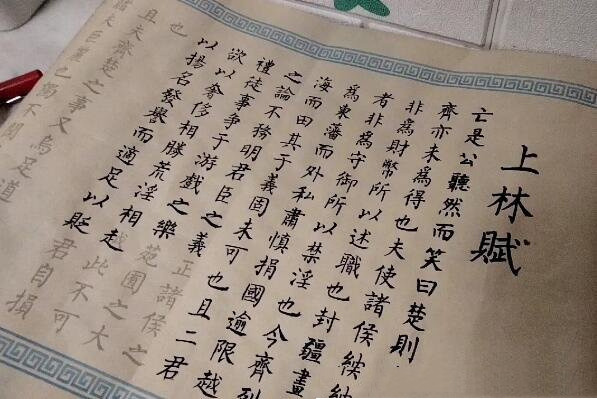 上林賦
亡是公聽然而笑曰楚則
齊亦未爲得也夫使諸侯納
非爲財幣所以述職也封疆畫
者非爲守御所以禁淫也今齊列
爲東藩而外私肅慎捐國逾限越
海而田其于義固未可也且二君
之論不務明君臣之義正諸侯之
禮徒事爭于游戲之樂苑囿之大
欲以奢侈相勝荒淫相越此不可
以揚名發譽而適足以貶君自損
也且夫齊楚之事又烏足道
夫巨麗也獨不聞